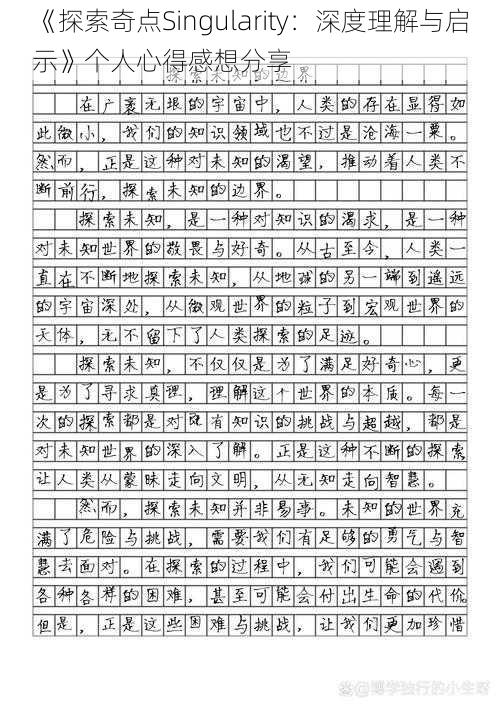 《探索奇点Singularity：深度理解与启
示》个人心得感想分享
探索未知的边界
在广袤无垠的宇宙中，人类的存在显得如
此微小，我们的知识领域也不过是沧海一粟。
然而，正是这种对未知的渴望，推动着人类不
断前行，探索未知的边界。
探索未知，是一种对知识的渴求，是一种
对未知世界的敬畏与好奇。从古至今，人类一
直在不断地探索未知，从地球的另一端到遥远
的宇宙深处，从微观世界的粒子到宏观世界的
天体，无不留下了人类探索的足迹。
探索未知，不仅仅是为了满足好奇心，更
是为了寻求真理，理解这个世界的本质。每一
次的探索都是对既有知识的挑战与超越，都是
对未知世界的深入了解。正是这种不断的探索
让人类从蒙昧走向文明，从无知走向智慧。
然而，探索未知并非易事。未知的世界充
满了危险与挑战，需要我们有足够的勇气与智
慧去面对。在探索的过程中，我们可能会遇到
各种各样的困难，甚至可能会付出生命的代价。
但是，正是这些困难与挑战，让我们更加珍惜
@博学独行的小生呀